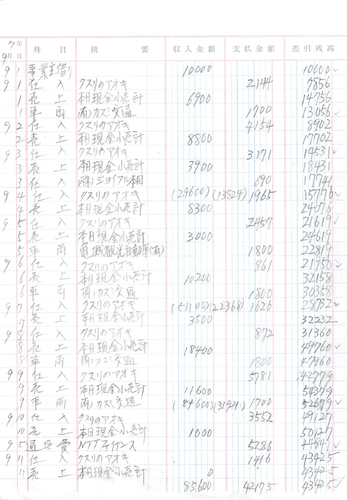 7年
9月日 科目 摘要 収入金額 支払金額 差引残高
9 1 事業主借 10000 10000
9 1 仕入 クスリのアオキ 2144 7856
1 売上 本日現金小売計 6900 14756
1 車両 (有)カズ交通 1700 13056
9 2 仕入 クスリのアオキ 4154 8902
2 売上 本日現金小売計 8800 17702
9 3 仕入 クスリのアオキ 3171 14531
3 売上 本日現金小売計 3900 18431
3 仕入 690 17741
9 4 仕入 クスリのアオキ (29600) (13824) 1965 15776
4 売上 本日現金小売計 8300 24076
9 5 仕入 クスリのアオキ 2457 21619
5 売上 本日現金小売計 3000 24619
5 車両 1800 22819
9 6 仕入 クスリのアオキ 861
6 売上 本日現金小売計 10200 32158
6 車両 (有)カズ交通 1800 30358
9 7 仕入 クスリのアオキ 1626 28732
7 売上 本日現金小売計 3500 32232
9 8 仕入 クスリのアオキ 872 31360
8 売上 本日現金小売計 18400 49760
8 車両 (有)カズ交通 1800 47960
9 9 仕入 クスリのアオキ 5181
9 売上 本日現金小売計 11600 54379
9 車両 (有)カズ交通 (84600) (31921) 1700 52679
9 10 仕入 クスリのアオキ 3552 49127
10 売上 本日現金小売計 1000 50127
9 5 通信費 NTTファイナンス 5286 44841
9 11 仕入 クスリのアオキ 1416 43425
11 売上 本日現金小売計 0 43425
85600 42175 43425